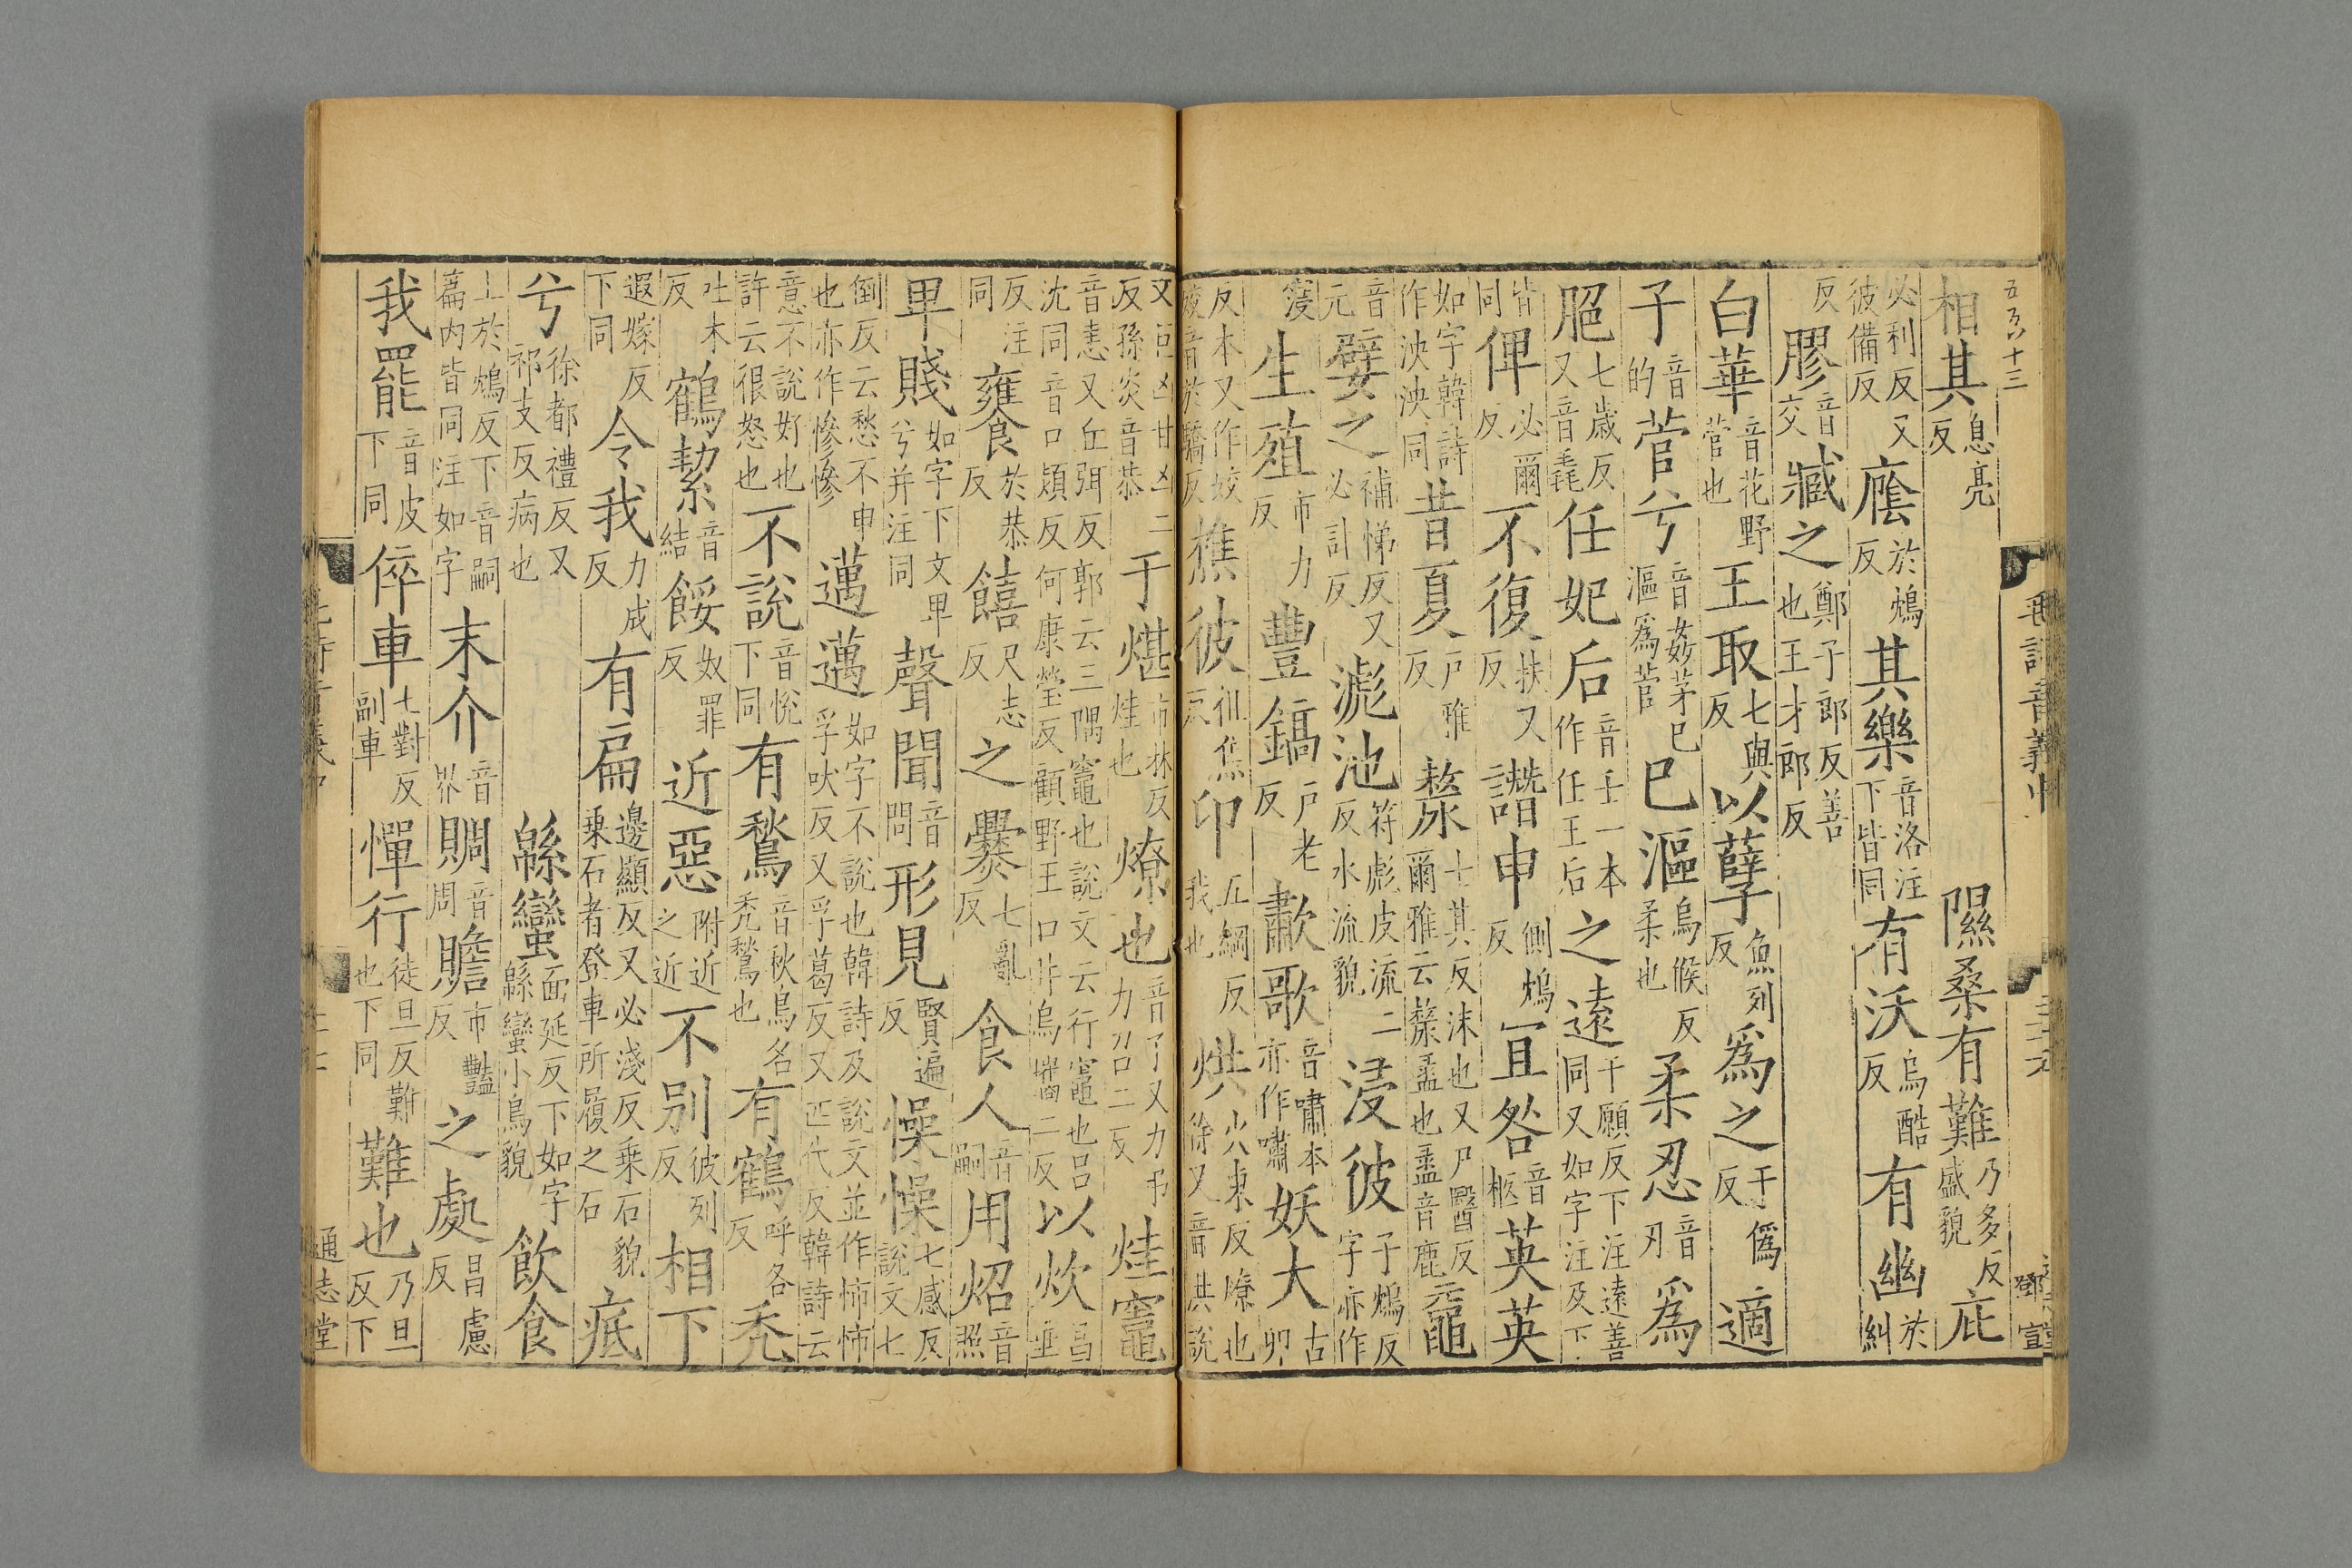 五百八十三
毛詩音義中
鄧宣
相其息亮反 隰桑有難乃多反盛貌 庇
必利反又彼備反 廕於鴆反 其樂音洛注下皆同 有沃烏酷反 有幽於糾
反 膠音交 臧之鄭子郎反善也王才郎反
白華音花野菅也 王取七與反 以孽魚列反 爲之于僞反 適
子音的 菅兮音姦茅已漚爲菅 巳漚烏候反柔也 柔忍音刃 爲
脃七歲反又音毳 任妃后音壬一本作任王后 之遠于願反下注遠善同又如字注及下
皆同 俾必爾反 不復扶又反 譖申側鴆反 宜咎音柩 英英
如字韓詩作泱泱同 昔夏戶雅反 漦士其反沫也又尸醫反爾雅云漦盝也盝音鹿 黿
音元 嬖之補悌反又必計反 滮池符彪皮流二反水流貌 浸彼子鴆反字亦作
寖 生殖市力反 豐鎬戶老反 歗歌音嘯本亦作嘯 妖大古卯
反本又作姣音於驕反 樵彼徂焦反 卬五綱反我也 烘火東反燎也徐又音洪說
文巨凶甘凶二反孫炎音恭 于煁市林反烓也 燎也音了又力弔力召二反 烓竈
音恚又丘弭反郭云三隅竈也說文云行竈也呂沈同音口熲反何康瑩反顧野王口井烏攜二反 以炊昌垂
反注同 饔於恭反 饎尺志反 之爨七亂反 食人音嗣 用炤音照
卑賤如字下文卑兮并注同 聲聞音問 形見賢遍反 懆懆七感反說文七
倒反云愁不申也亦作慘慘 邁邁如字不說也韓詩及說文並作㤄㤄孚吠反又孚葛反又匹代反韓詩云
意不說好也許云很怒也 不說音悅下同 有鶖音秋鳥名禿鶖也 有鶴呼各反 禿
吐木反 鶴絜音結 餒奴罪反 近惡附近之近 不別彼列反 相下
遐嫁反下同 令我力成反 有扁邊顯反又必淺反乘石貌乘石者登車所履之石 疧
兮徐都禮反又祁支反病也 緜蠻面延反下如字緜蠻小鳥貌 飲食
上於鴆反下音嗣篇內皆同注如字 末介音界 賙音周 贍市豔反 之處昌慮反
我罷音皮下同 倅車七對反副車 憚行徒旦反難也下同 難也乃旦反下
通志堂